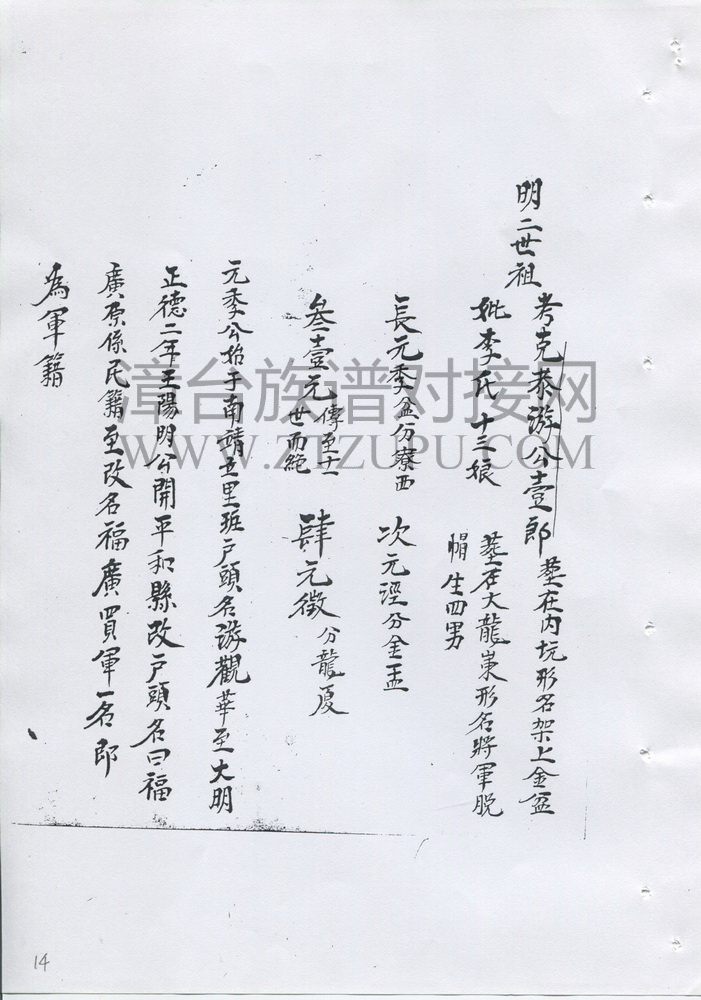 明二世祖
考克恭游公壹郎 塟在内坑形名架上金盆
妣李氏十三娘 塟在大龍崬形名將軍脱
帽生四男
長元季公分寮西 次元浧分金盂
叁壹元傳至十一世而絕 肆元徵分龍厦
元季公始于南靖立里班户頭名游觀華至大明
正德二年王陽明公開平和縣改户頭名曰福
廣原係民籍至改名福廣買軍一名即
為軍籍
漳台族谱对接网
WWW.ZTZUPU.COM
14